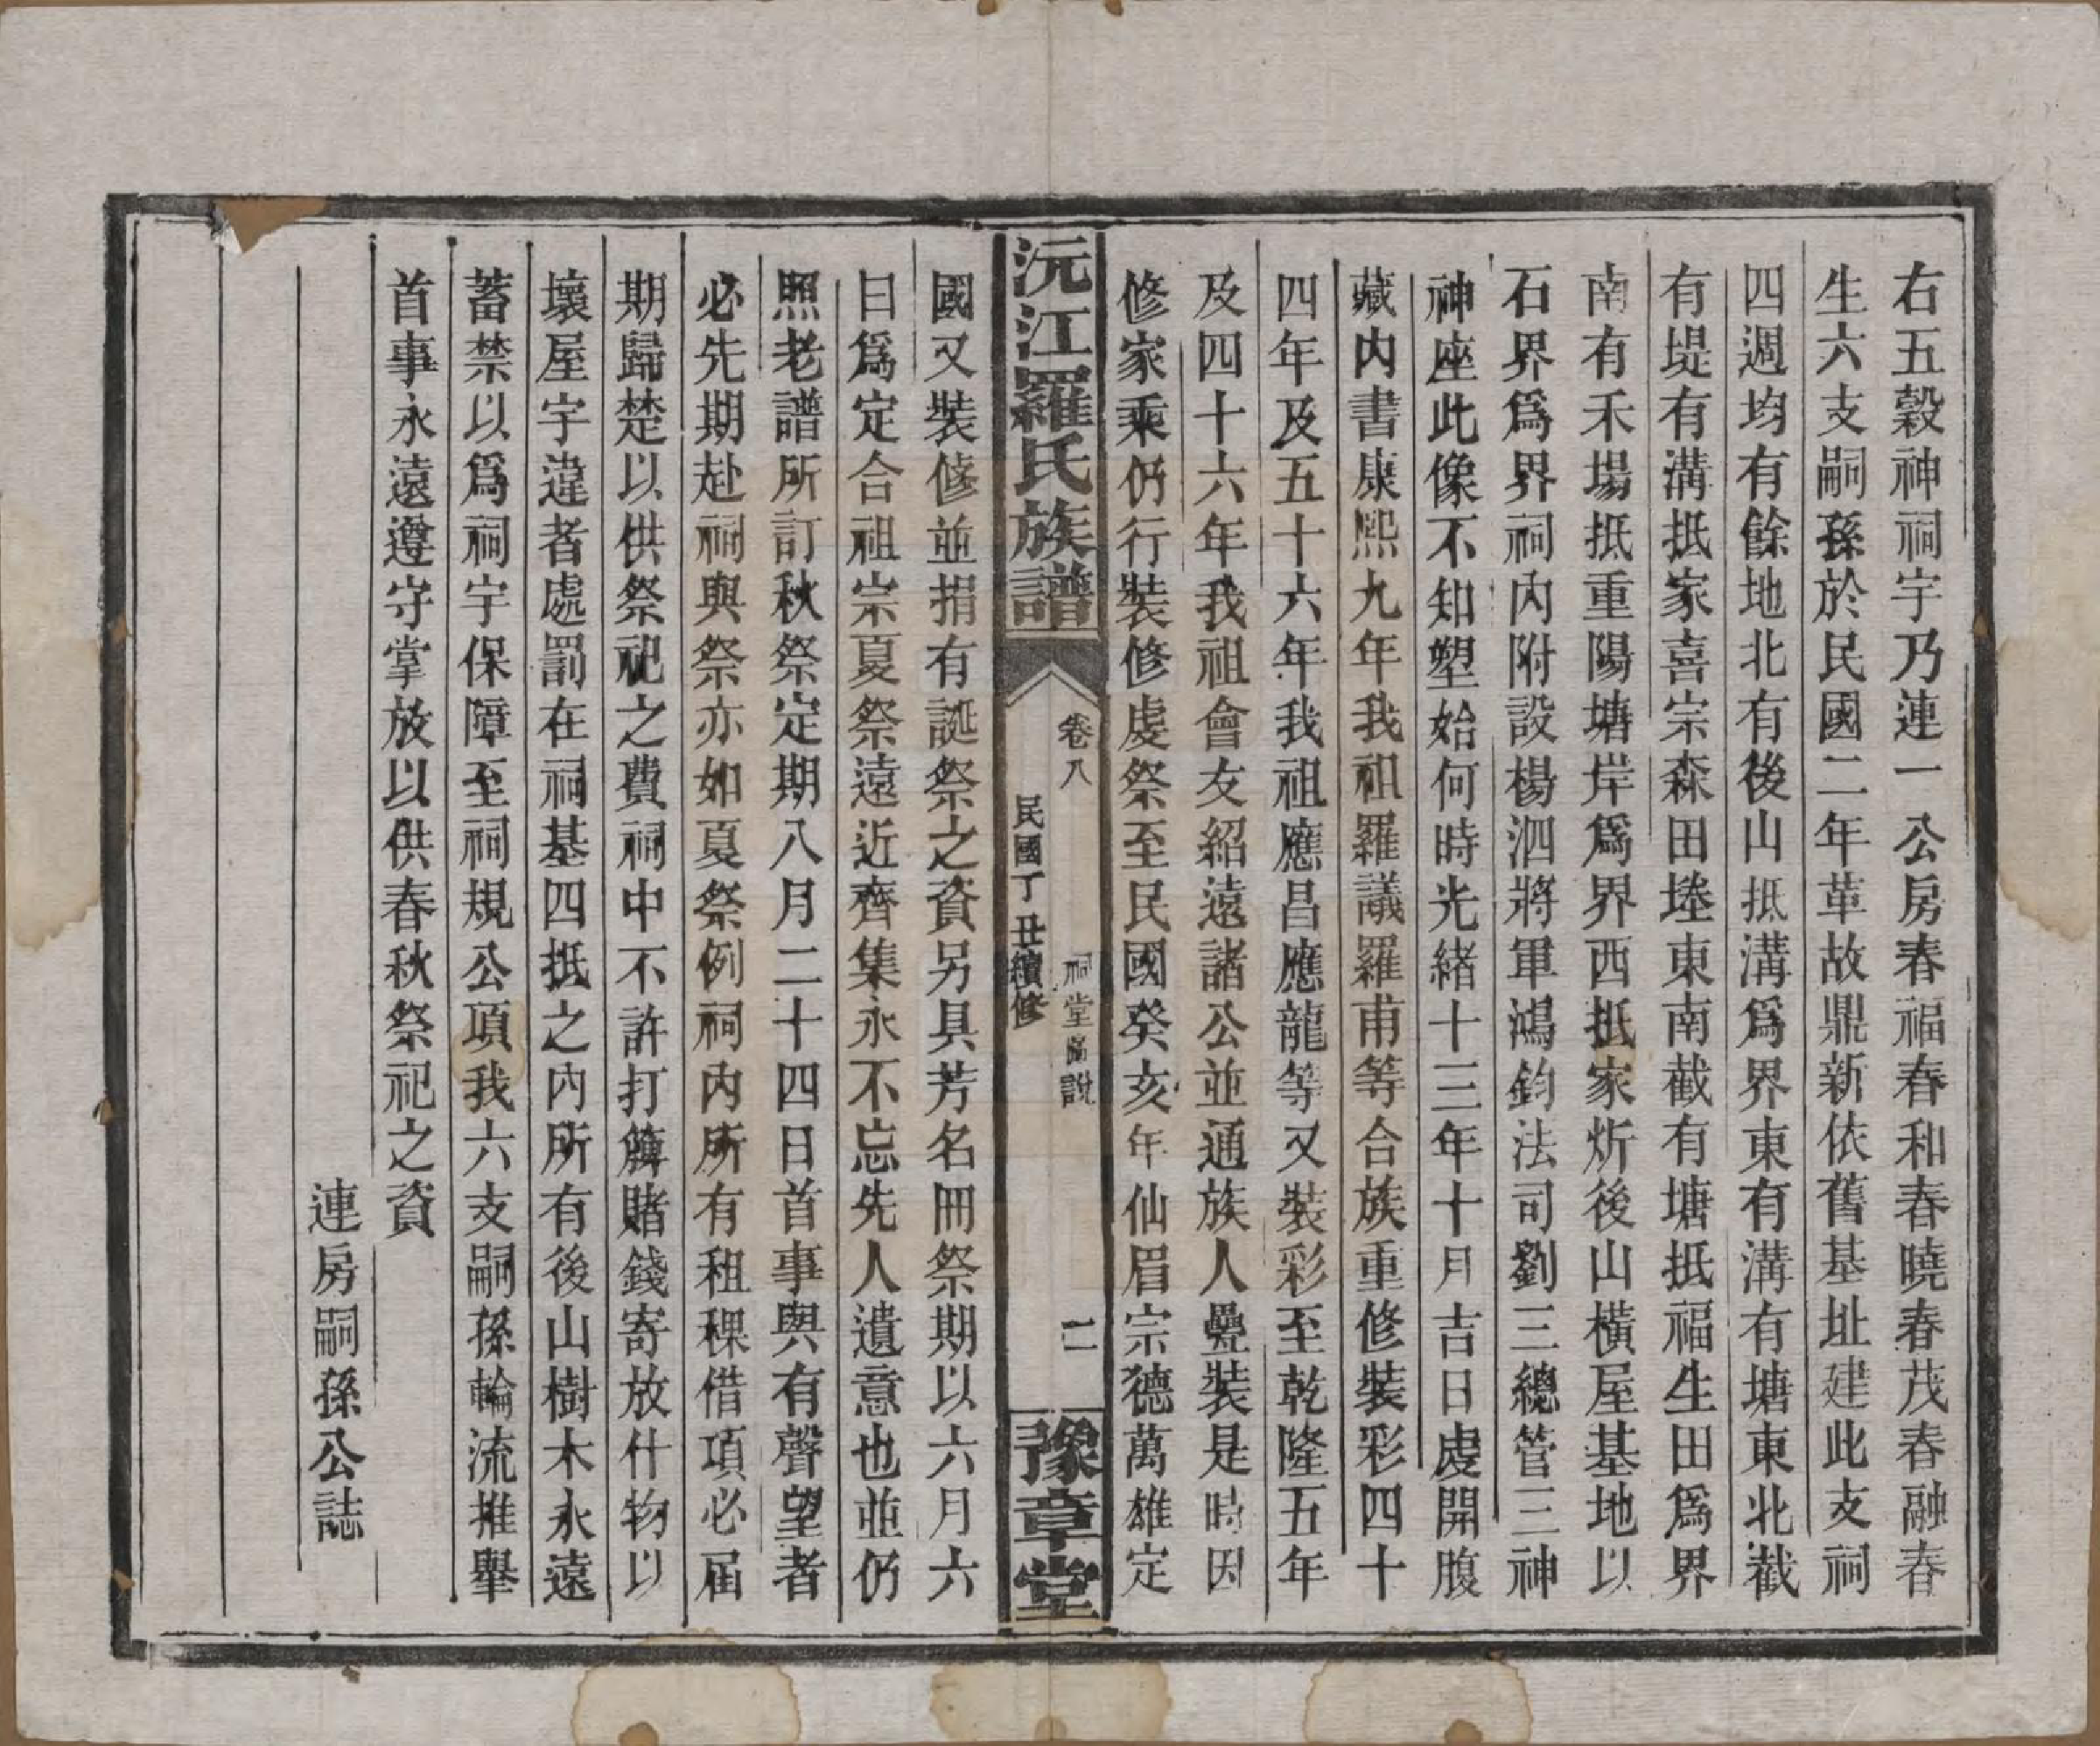 右五穀神祠宇乃連一公房春福春和春曉春茂春融春
生六支嗣孫於民國二年革故鼎新依舊基址建此支祠
四週均有餘地北有後山抵溝爲界東有溝有塘東北截
有堤有溝抵家喜宗森田堘東南截有塘抵福生田爲界
南有禾場抵重陽塘岸爲界西抵家炘後山橫屋基地以
石界爲界祠內附設楊泗將軍鴻鈞法司劉三總管三神
神座此像不知塑始何時光緒十三年十月吉日虔開腹
藏內書康熙九年我祖羅議羅甫等合族重修裝彩四十
四年及五十六年我祖應昌應龍等又裝彩至乾隆五年
及四十六年我祖會友紹遠諸公並通族人疊裝是時因
修家乘仍行裝修虔祭至民國癸亥年仙眉宗德萬雄定
沅江羅氏族譜
卷八
祠堂圖說
二
民國丁丑續修
豫章堂
國又裝修並捐有誕祭之資另具芳名冊祭期以六月六
日爲定合祖宗夏祭遠近齊集永不忘先人遺意也並仍
照老譜所訂秋祭定期八月二十四日首事與有聲望者
必先期赴祠與祭亦如夏祭例祠內所有租稞借項必屆
期歸楚以供祭祀之費祠中不許打簰賭錢寄放什物以
壞屋宇違者處罰在祠基四抵之內所有後山樹木永遠
蓄禁以爲祠宇保障至祠規公項我六支嗣孫輪流推舉
首事永遠遵守掌放以供春秋祭祀之資
連房嗣孫公誌